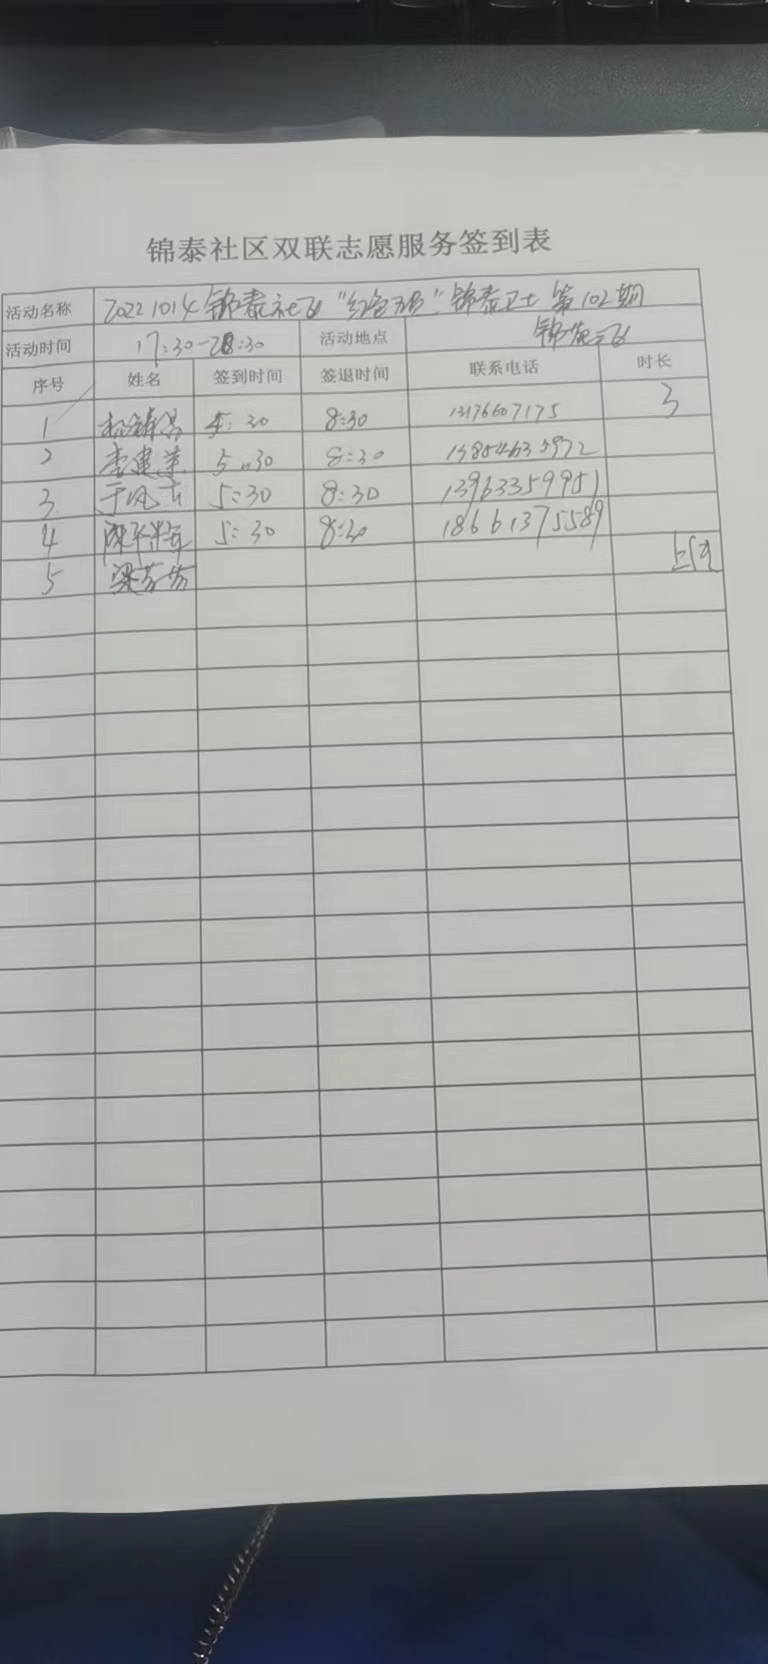 锦泰社区双联志愿服务签到表
活动名称 20221014锦泰社区"红色 "锦泰卫士 第102期
活动时间 17:30-20:30 活动地点 锦泰社区
序号 姓名 签到时间 签退时间 联系电话 时长
1 5:30 8:30 13176607175 3
2 李建美 5:30 8:30
3 于凤 5:30 8:30 13963359951
4 5:30 8:30 18661375589
5 梁芳芳